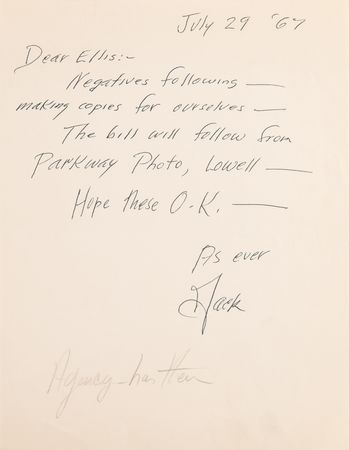 July 29 '67
Dear Ellis:-
Negatives following —
making copies for ourselves —
The bill will follow from
Parkway Photo, Lowell —
Hope these O.K. —
As ever
Jack
Agency - has